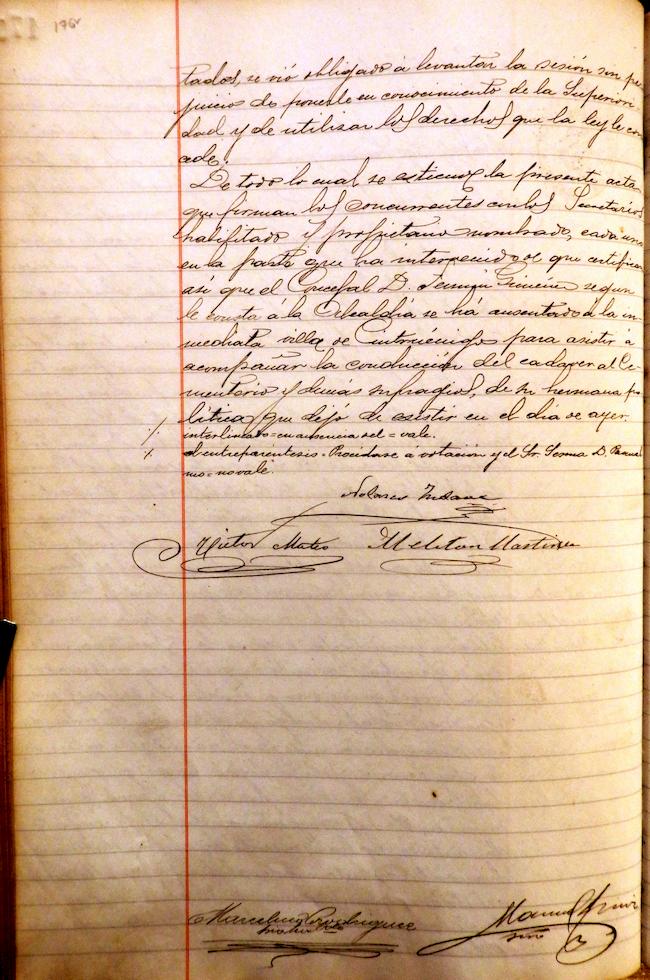 176v
tados, se vió obligado á levantar la sesión sin per
juicio de ponerlo en conocimiento de la Superiori
dad y de utilizar los derechos que la ley le con
cede.
De todo lo cual se estiende la presente acta
que firman los concurrentes con los Secretarios
habilitado y propietario nombrado, cada uno
en la parte que ha intervenido de que certifican
así que el Concejal D. Fermín Giménez segun
le consta á la Alcaldía se há ausentado á la in
mediata villa de Cintruénigo para asistir á
acompañar la conducción del cadaver al Ce-
menterio y demás sufragios, de su hermana po
lítica que dejó de existir en el día de ayer.
interlineado = en ausencia del = vale.
el entreparentesis = Procédase a votación y el Sr. Sesma D.
mo = no vale.
Victor Mateo Meliton Martinez
Marcelino Rodriguez
Manuel